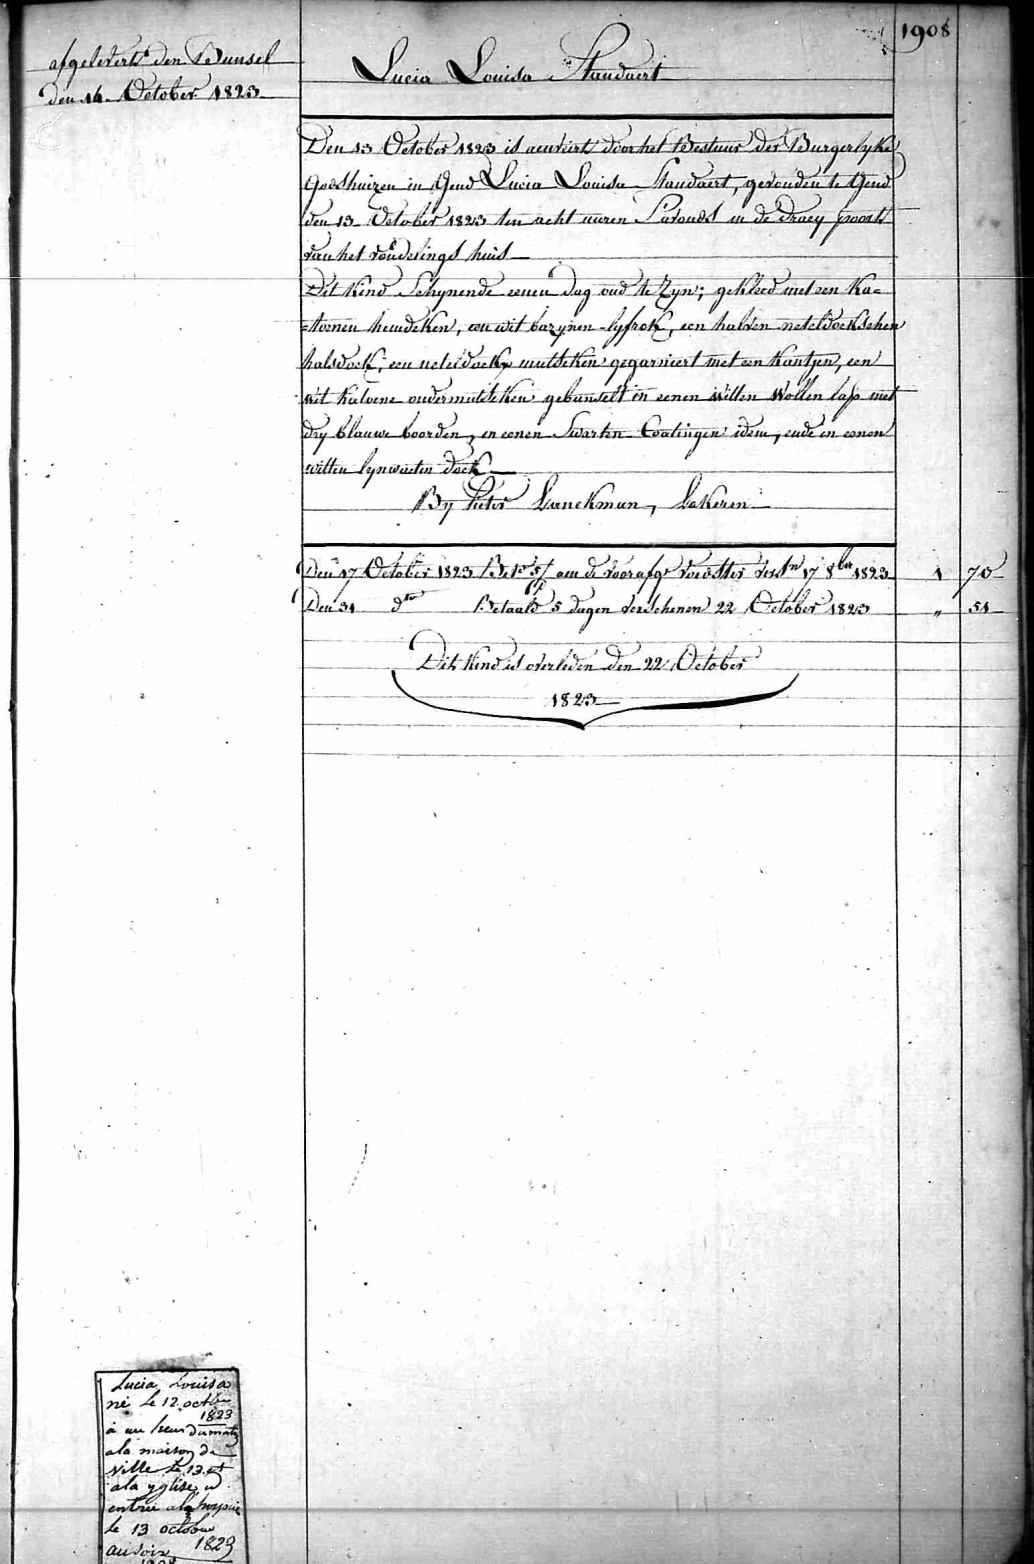 1908
afgelevert den Bunsel
den 14 October 1823
Lucia Louisa Standaert
Den 13 October 1823 is aenveirt door het Bestuur der Burgerlyke
Godshuizen in Gend Lucia Louisa Standaert, gevonden te Gend
den 13 October 1823 ten acht uuren S'avonds in de Draey poorte
van het vondelings huis
Dit Kind Schynende eenen dag oud te Zyn; gekleed met een Ka=
=toenen hemdeken, een wit bazynen lyfrok, een halven neteldoekschen
halsdoek, een neteldoekx mutsken gegarniert met een kantjen, een
wit katoene ondermutsken gebunselt in eenen witten Wollen lap met
dry blauwe boorden, en eenen Swarten Coatingen idem, ende en eenen
witten lynwaeten doek
By Pieter Lanckman, Lokeren
Den 17 October 1823 aen de voorafge voedster 17 8ber 1823 1 70
Den 31 do Betaald 5 dagen verschenen 22 October 1823 " 51
Dit Kind is overleden den 22 October
1823
Lucia Louisa
né le 12 octbre
1823
à un heur du matin
a la maison de
ville le 13 et
a la yglise, et
entrée a la hospice
le 13 octobre
au soir 1823